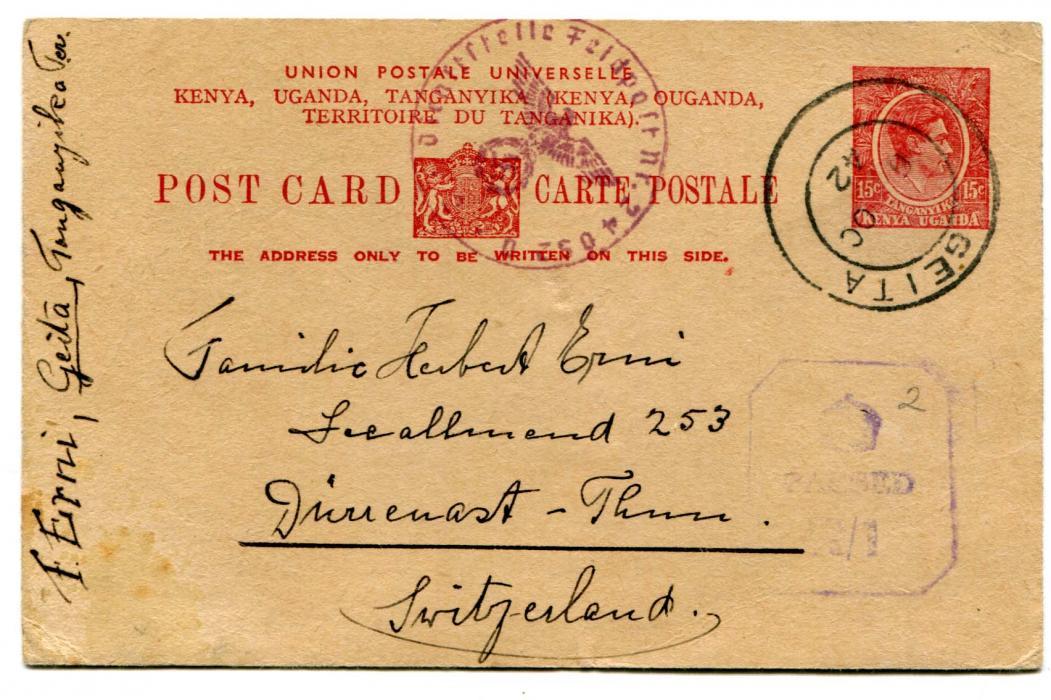 Dienststelle Feldpost Nr. 24052 U
UNION POSTALE UNIVERSELLE
KENYA, UGANDA, TANGANYIKA (KENYA, OUGANDA,
TERRITOIRE DU TANGANIKA).
POST CARD CARTE POSTALE
THE ADDRESS ONLY TO BE WRITTEN ON THIS SIDE.
15c 15c
TANGANYIKA
KENYA UGANDA
GEITA
42
Familie Herbert Erni
Seeallmend 253
Dürrenast - Thun.
Switzerland.
F. Erni, Geita, Tanganyika Ter.
2
PASSED